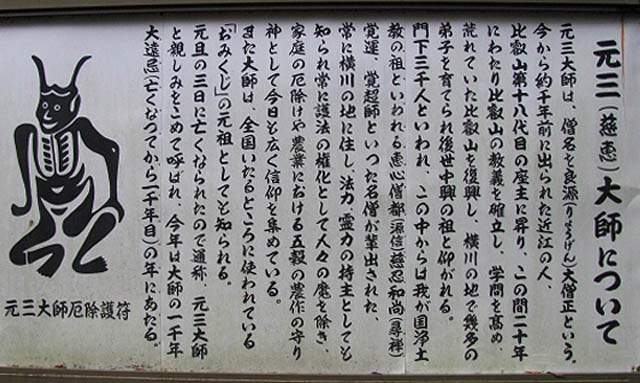 元三(慈恵)大師について
元三大師は、僧名を良源(りょうげん)大僧正という。
今から約千年前に出られた近江の人、
比叡山第十八代目の座主に昇り、この間二十年
にわたり比叡山の教義を確立し、学問を高め、
荒れていた比叡山を復興し、横川の地で幾多の
弟子を育てられ後世中興の祖と仰がれる。
門下三千人といわれ、この中からは我が国浄土
教の祖といわれる恵心僧都(源信)慈忍和尚(尋禅)
覚運、覚超師といった名僧が輩出された、
常に横川の地に住し、法力、霊力の持主としても
知られ常に護法の権化として人々の魔を除き、
家庭の厄除けや農業における五穀の農作の守り
神として今日も広く信仰を集めている。
また大師は、全国いたるところに使われている
「おみくじ」の元祖としても知られる。
元旦の三日に亡くなられたので通称、元三大師
と親しみをこめて呼ばれ、今年は大師の一千年
大遠忌(亡くなってから一千年目)の年にあたる。
元三大師厄除護符